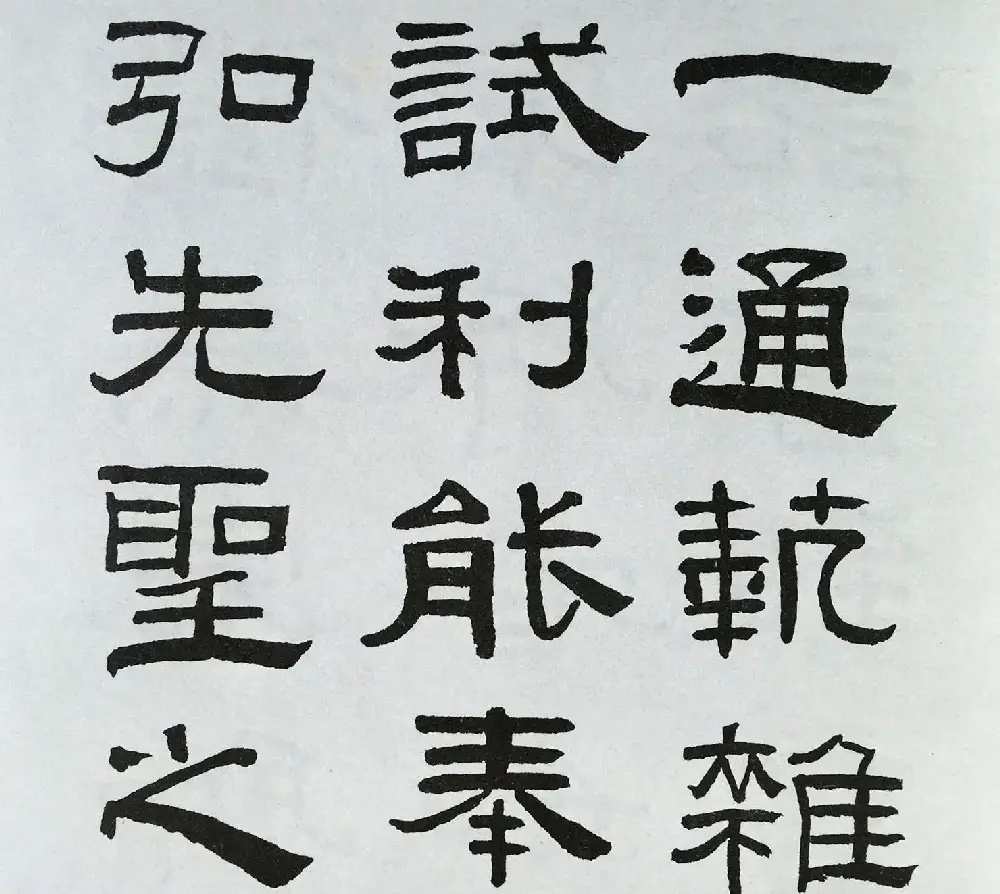 一通埶雜
試利能奉
弘先聖之